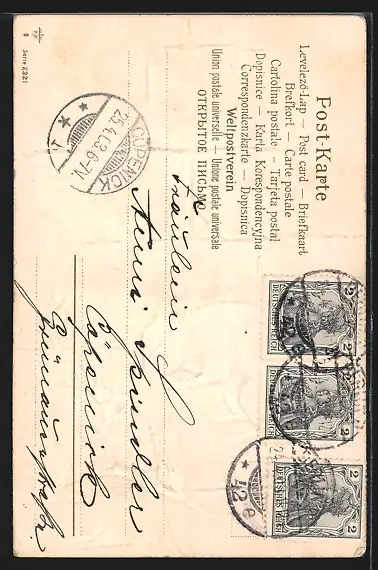 Post-Karte
Levelező-Lap — Post card — Briefkaart
Brefkort — Carte postale
Cartolina postale — Tarjeta postal
Dopisnice — Karta Korespondencyjna
Correspondenzkarte — Dopisnica
Weltpostverein
ОТКРЫТОЕ ПИСЬМО
Union postale universelle — Unione postale universale
Fräulein
Anni Spindler
Cöpenick
Grünauerstraße
CÖPENICK
6-7V
1
Serie 2321
DEUTSCHES REICH
2
2
DEUTSCHES REICH
2
2
DEUTSCHES REICH
2
2
42 e